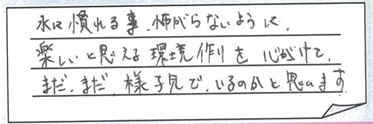 水に慣れる事、怖がらないように、
楽しいと思える環境作りを心がけて、
まだ、まだ、様子見で、いるのかと思います